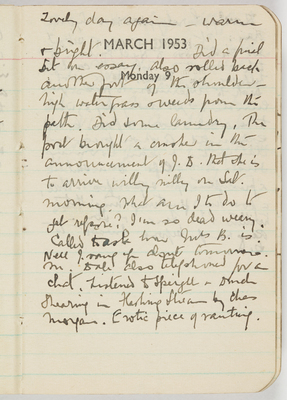 Lovely day again – warm
& bright. Did a fiel
MARCH 1953
bit on essay. Also rolled back
Monday 9
another part of the shoulder-
high watergrass & weeds from the
path. Did some laundry. The
post brought a cracker in the
announcement of J. D. that she is
to arrive willy nilly on Sat.
morning. What am I to do to
get repose? I'm so dead weary.
Called to ask how Mrs B. is.
Neil J. rang up about tomorrow.
M. also telephoned for a
chat. Listened to & Dutch
Shearing in Flashing Stream by Chas
Morgan. Erotic piece of writing.